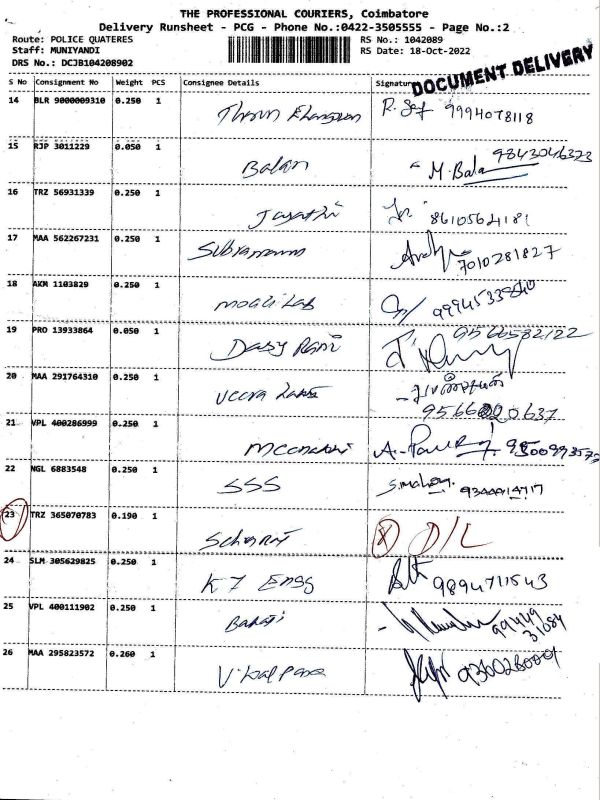 THE PROFESSIONAL COURIERS, Coimbatore
Delivery Runsheet - PCG - Phone No.:0422-3505555 - Page No.:2
Route: POLICE QUATERES RS No.: 1042089
Staff: MUNIYANDI RS Date: 18-Oct-2022
DRS No.: DCJB104208902
DOCUMENT DELIVERY
S No Consignment No Weight PCS Consignee Details Signature
14 BLR 9000009310 0.250 1 9994078118
15 RJP 3011229 0.050 1 Balan M. Bala 9843046323
16 TRZ 56931339 0.250 1 Jayathi 8610564181
17 MAA 562267231 0.250 1 7010281827
18 AKM 1103829 0.250 1
19 PRO 13933864 0.050 1 Dasy Rani 9566582122
20 MAA 291764310 0.250 1 Veera
21 VPL 400286999 0.250 1 Meenakshi
22 NGL 6883548 0.250 1 SSS
23 TRZ 365070783 0.190 1 D/L
24 SLM 305629825 0.250 1 K 7 Engg 9894711543
25 VPL 400111902 0.250 1 99449 31084
26 MAA 295823572 0.260 1 V. Kalpana 9360280001